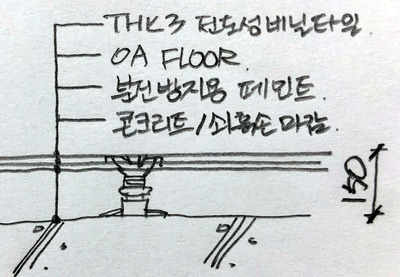 THK3 전도성비닐타일.
OA FLOOR.
분진방지용 페인트.
콘크리트/쇠흙손 마감.
150